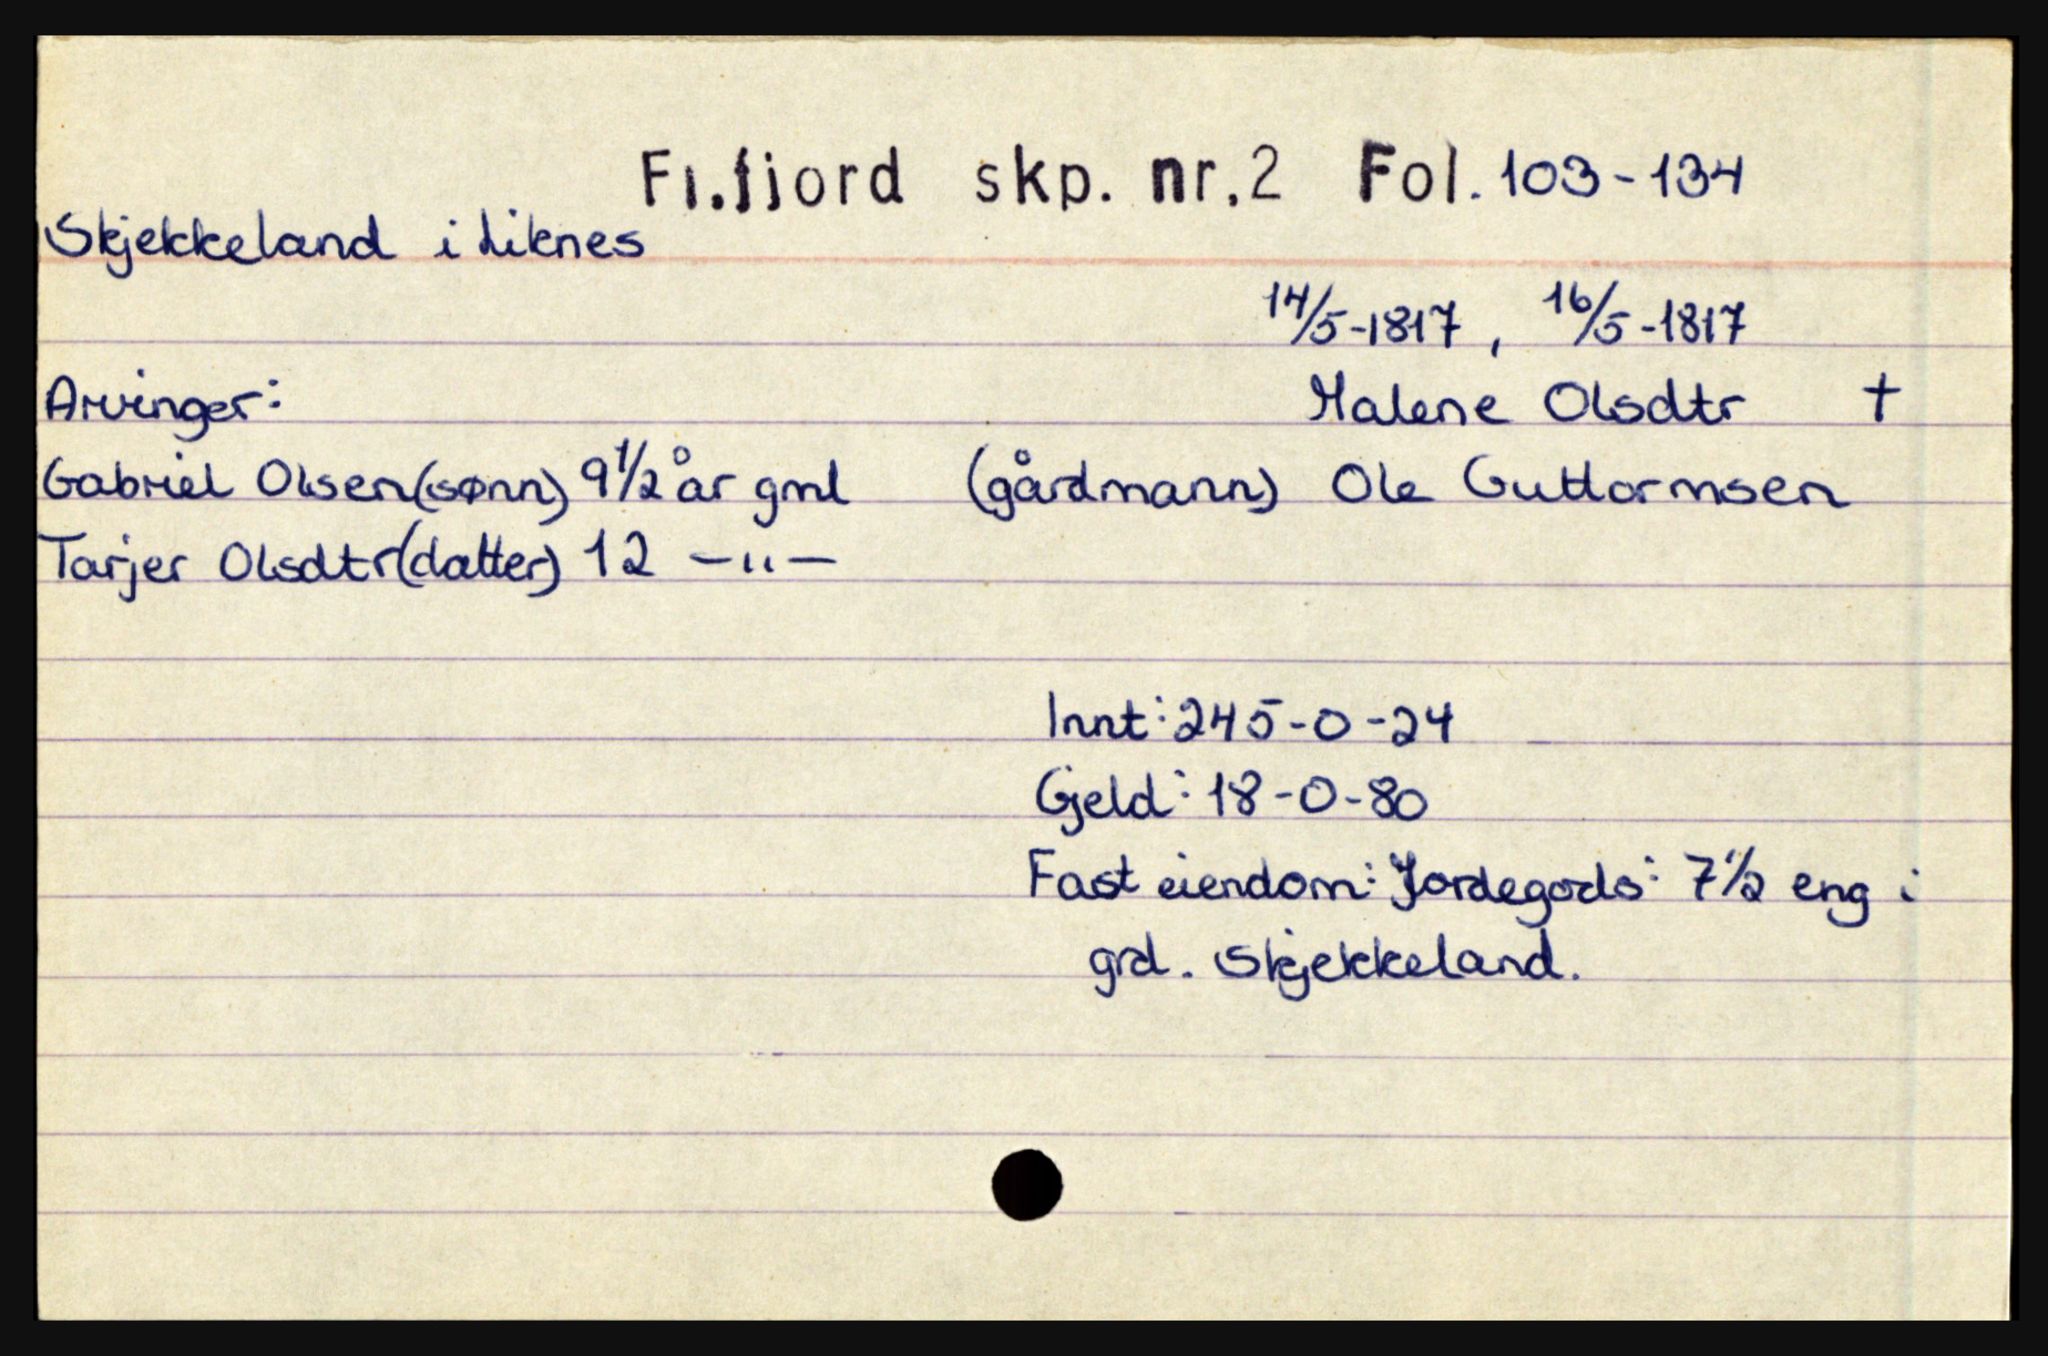 Fl.fjord skp. nr.2 Fol. 103-134
Skjekkeland i Liknes
14/5-1817, 16/5-1817
Arvinger: Malene Olsdtr †
Gabriel Olsen(sønn) 9 1/2 år gml (gårdmann) Ole Guttormsen
Tarjer Olsdtr(datter) 12 —"—
Innt: 245-0-24
Gjeld: 18-0-80
Fast eiendom: Jordegods: 7 1/2 eng i
grd. Skjekkeland.